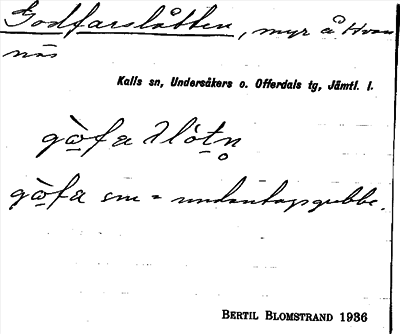 Godfarslåtten, myr å Hvan
näs
Kalls sn, Undersåkers o. Offerdals tg, Jämtl. l.
gò̱fa sm = undantagsgubbe.
BERTIL BLOMSTRAND 1936